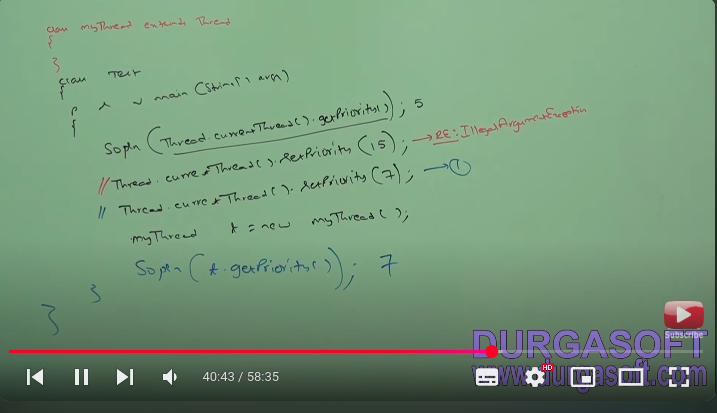 class myThread extends Thread
{
}
class Test
{
p s v main(String[] args)
{
Sopln(Thread.currentThread().getPriority()); 5
// Thread.curre*Thread().setPriority(15); → RE: IllegalArgumentException
// Thread.curre*Thread().setPriority(7); → 1
myThread t = new myThread();
Sopln(t.getPriority()); 7
}
}
Subscribe
DURGASOFT
www.durgasoft.com
40:43 / 58:35
HD